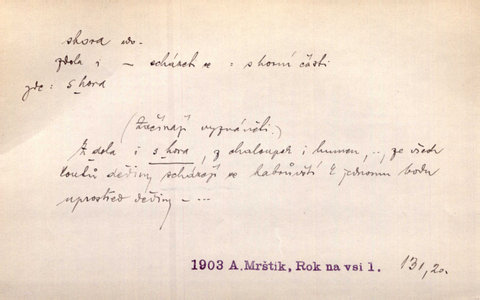 shora adv.
zdola i — scházeti se : s horní části
zde : s hora
(Začínají vyznávati.)
Z dola i s hora, z chaloupek i humen, .., ze všech
koutů dědiny scházejí se k jednomu bodu
uprostřed dědiny – ...
1903 A. Mrštík, Rok na vsi 1. 131,20.